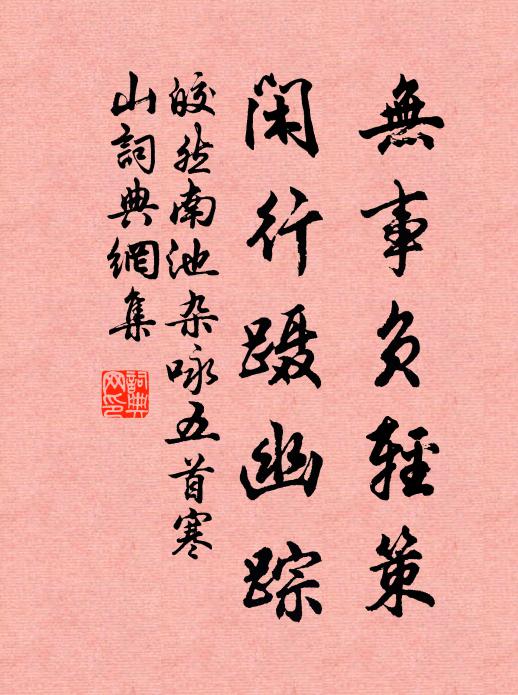 無事负輕策
闲行蹑幽踪
皎然南池杂咏五首寒
山詞典網集
詞典网印